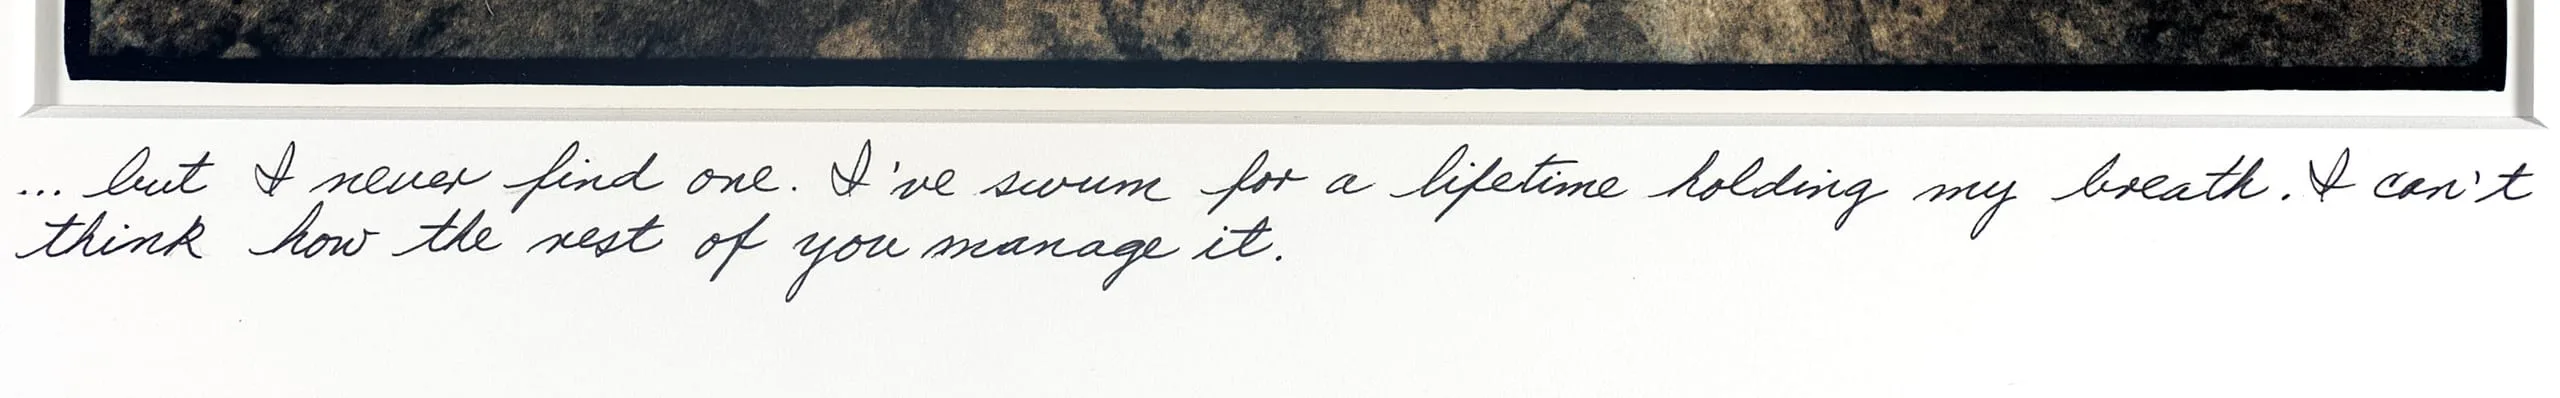 ... but I never find one. I've swum for a lifetime holding my breath. I can't
think how the rest of you manage it.